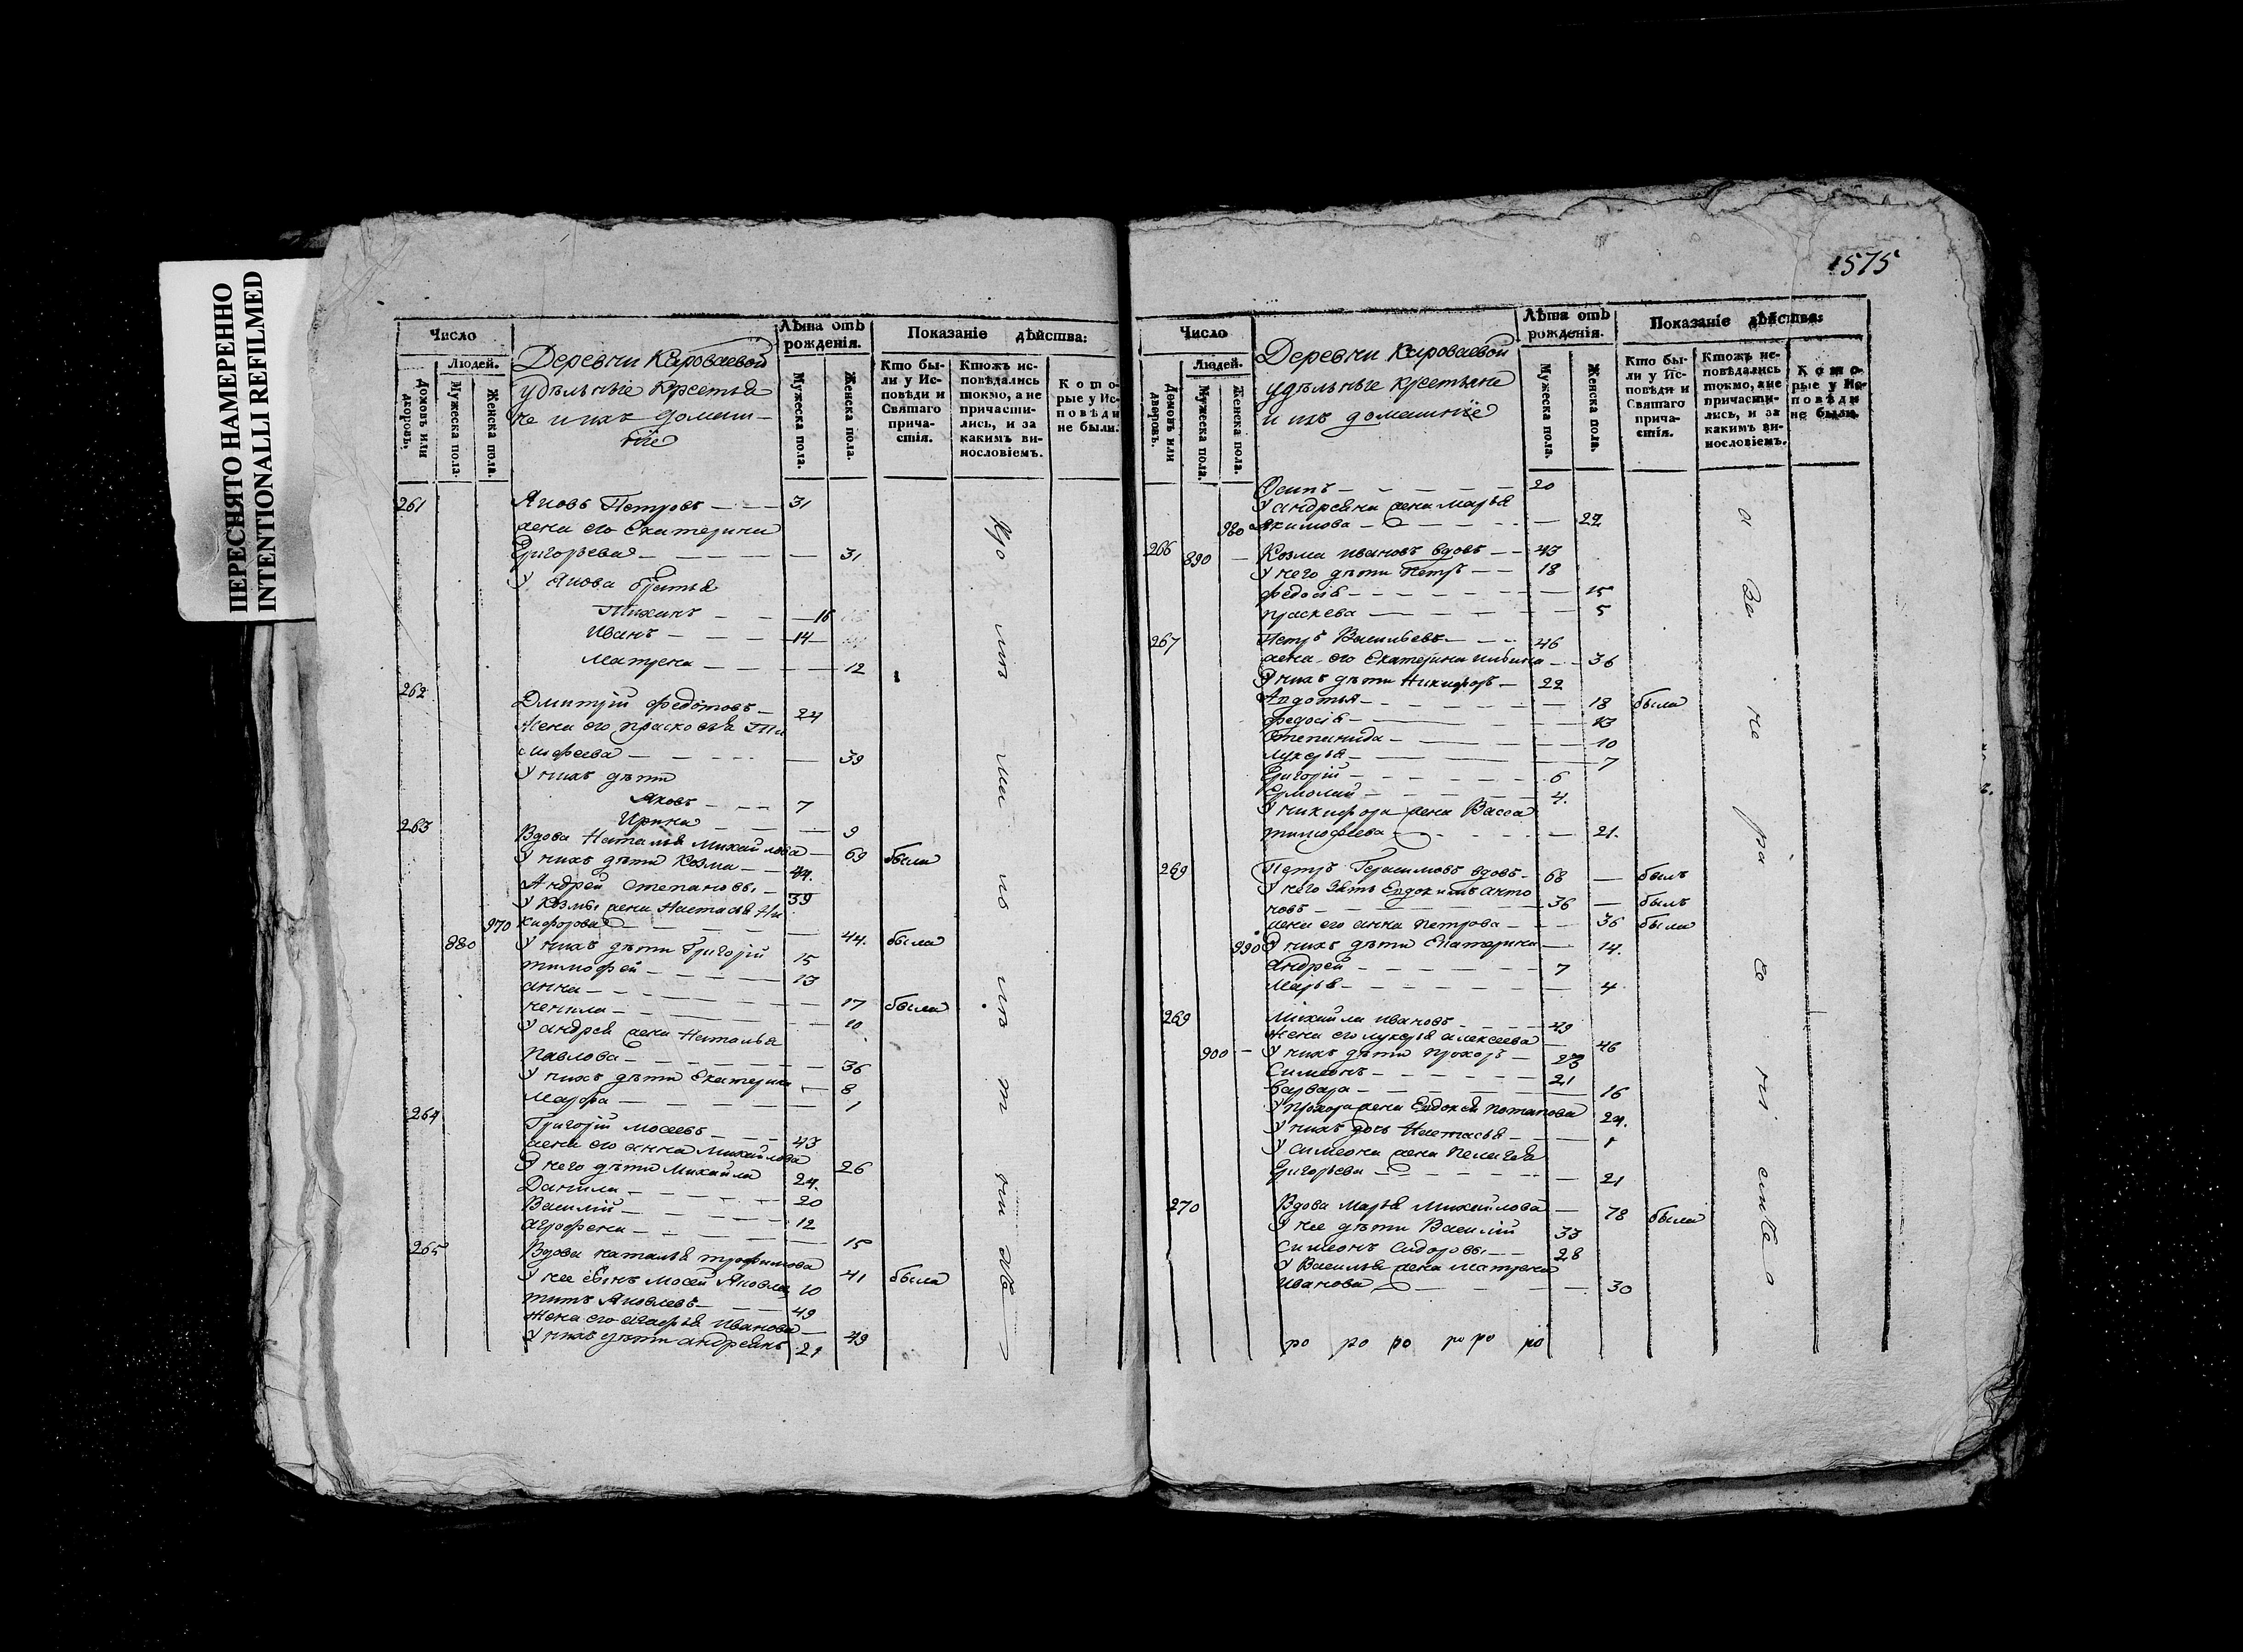 ПЕРЕСНЯТО НАМЕРЕННО
INTENTIONALLI REFILMED
1575
Число
Людей.
Домовъ или дворовъ.
Мужеска пола.
Женска пола.
Деревни Караваевой
удѣльные Крестья
не и ихъ домаш-
ніе
Лѣта отъ рожденія.
Мужеска пола.
Женска пола.
Показаніе дѣйства:
Кто бы-
ли у Ис-
повѣди и
Святаго
прича-
стія.
Ктожъ ис-
повѣдались
токмо, а не
причасти-
лись, и за
какимъ ви-
нословіемъ.
Кото-
рые у Ис-
повѣди
не были.
261 Яковъ Петровъ 31
жена его Екатерина
Григорьева 31
У Якова братья
16
Иванъ 14
Матрена 12
262
Дмитрій Федотовъ 24
Жена его Прасковья Ти
мофеева 39
У нихъ дѣти
Яковъ 7
Ирина 9
263 Вдова Наталья Михайлова 69 была
У нихъ дѣти Козма 44.
Андрей Степановы 39
У Козмы жена Настасья Ни
970 кифорова 44. была
880 У нихъ дѣти Григорій 15
Тимофей 13
Анна 17 была
Ненила 10
У Андрея жена Наталья
Павлова 36
У нихъ дѣти Екатерина 8
Марфа 1
264 Григорій Мосеевъ 43
жена его Анна Михайлова 26
У него дѣти Михайла 24.
Данила 20
Василій 12
Агрофена 15
265 Вдова Наталья Трофимова 41 была
У нее сынъ Мосей Яковлев 10
Титъ Яковлевъ 49
Жена его Агафья Иванова 49
У нихъ дѣти Андреянъ 21
Число
Людей.
Домовъ или дворовъ.
Мужеска пола.
Женска пола.
Деревни Караваевой
удѣльные крестьяне
и ихъ домашніе
Лѣта отъ рожденія.
Мужеска пола.
Женска пола.
Показаніе дѣйства:
Кто бы-
ли у Ис-
повѣди и
Святаго
прича-
стія.
Ктожъ ис-
повѣдались
токмо, а не
причасти-
лись, и за
какимъ ви-
нословіемъ.
Кото-
рые у Ис-
повѣди
не были.
Осипъ 20
У Андреяна жена Марья
980 Якимова 22
266 890 Козма Ивановъ вдовъ 43
У него дѣти Петръ 18
Федосья 15
Праскева 5
267 Петръ Васильевъ 46
жена его Екатерина 36
У нихъ дѣти Никифоръ 22
Авдотья 18 была
Федосья 13
Степанида 10
Лукерья 7
Григорій 6
Ермолай 4.
У Никифора жена Васса
Тимофеева 21.
269 Петръ Герасимовъ вдовъ 68 былъ
У него зять Евдокимъ Анто
новъ 36 былъ
жена его Анна Петрова 36 была
990 У нихъ дѣти Екатерина 14.
Андрей 7
Марья 4
269 Михайла Ивановъ 49
Жена его Лукерья Алексеева 46
900 У нихъ дѣти Прохоръ 23
Симеонъ 21
Варвара 16
У Прохора жена Евдокея Потапова 24.
У нихъ дочь Настасья 1
У Симеона жена Пелагея
Григорьева 21
270 Вдова Марья Михайлова 78 была
У нее дѣти Василій 33
Симеонъ Сидоровы 28
У Василья жена Матрена
Иванова 30
ро ро ро ро ро ро